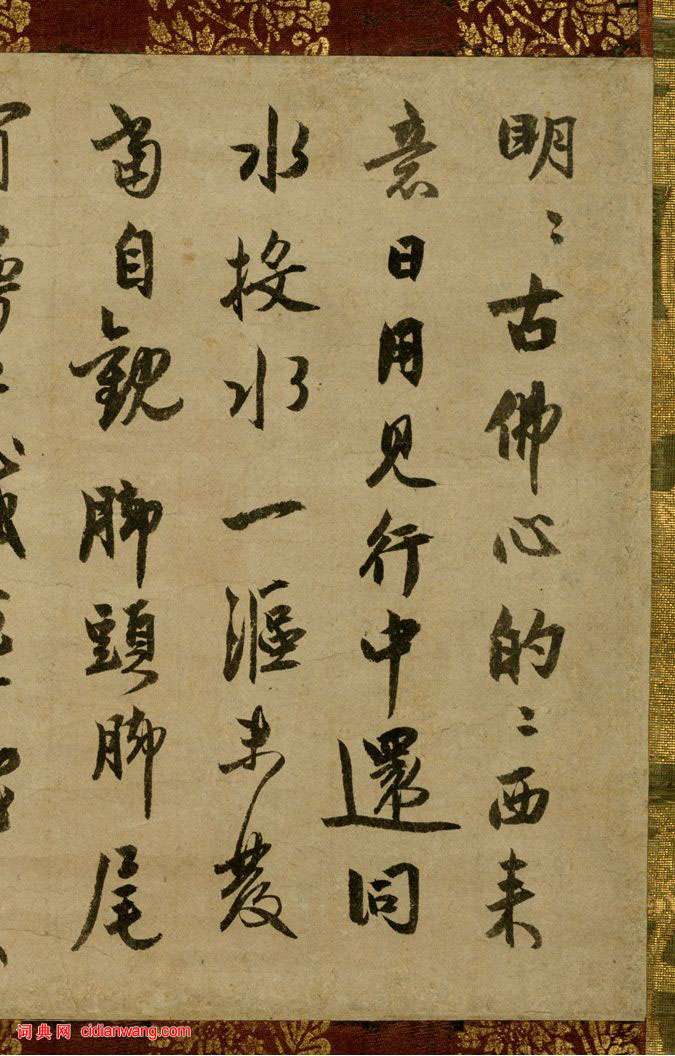 明〻古佛心的〻西来
意日用見行中還同
水投水一漚未發
當自觀脚頭脚尾
词典网 cidianwang.com